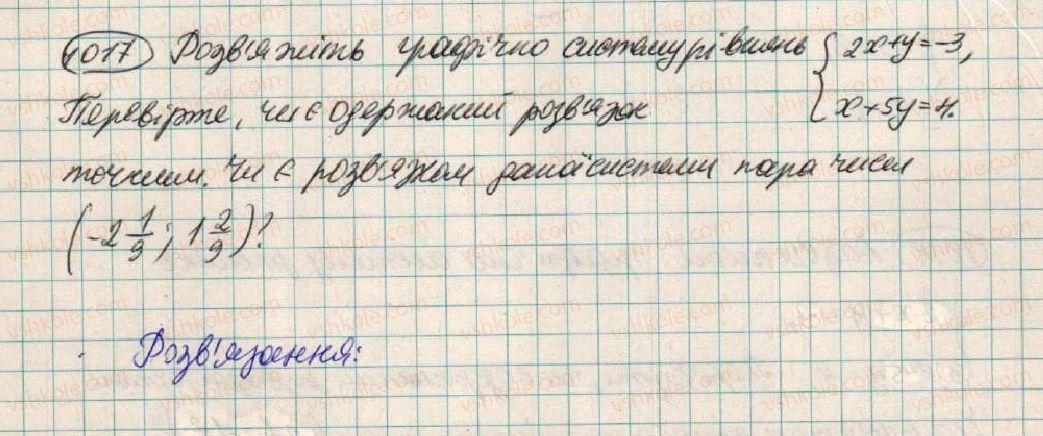 1017 Розв'яжіть графічно систему рівнянь { 2x+y=-3,
Перевірте, чи є одержаний розв'язок x+5y=4.
точним. Чи є розв'язком даної системи пара чисел
(-2 1/9; 1 2/9)?
Розв'язання: